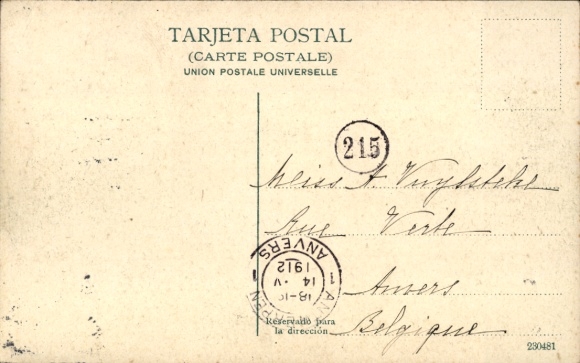 TARJETA POSTAL
(CARTE POSTALE)
UNION POSTALE UNIVERSELLE
215
Meiss A. Vuylsteke
Rue Verte
Anvers
Belgique
ANVERS
1912
14 · V
18-1
ANTWERPEN
Reservado para
la dirección
230481